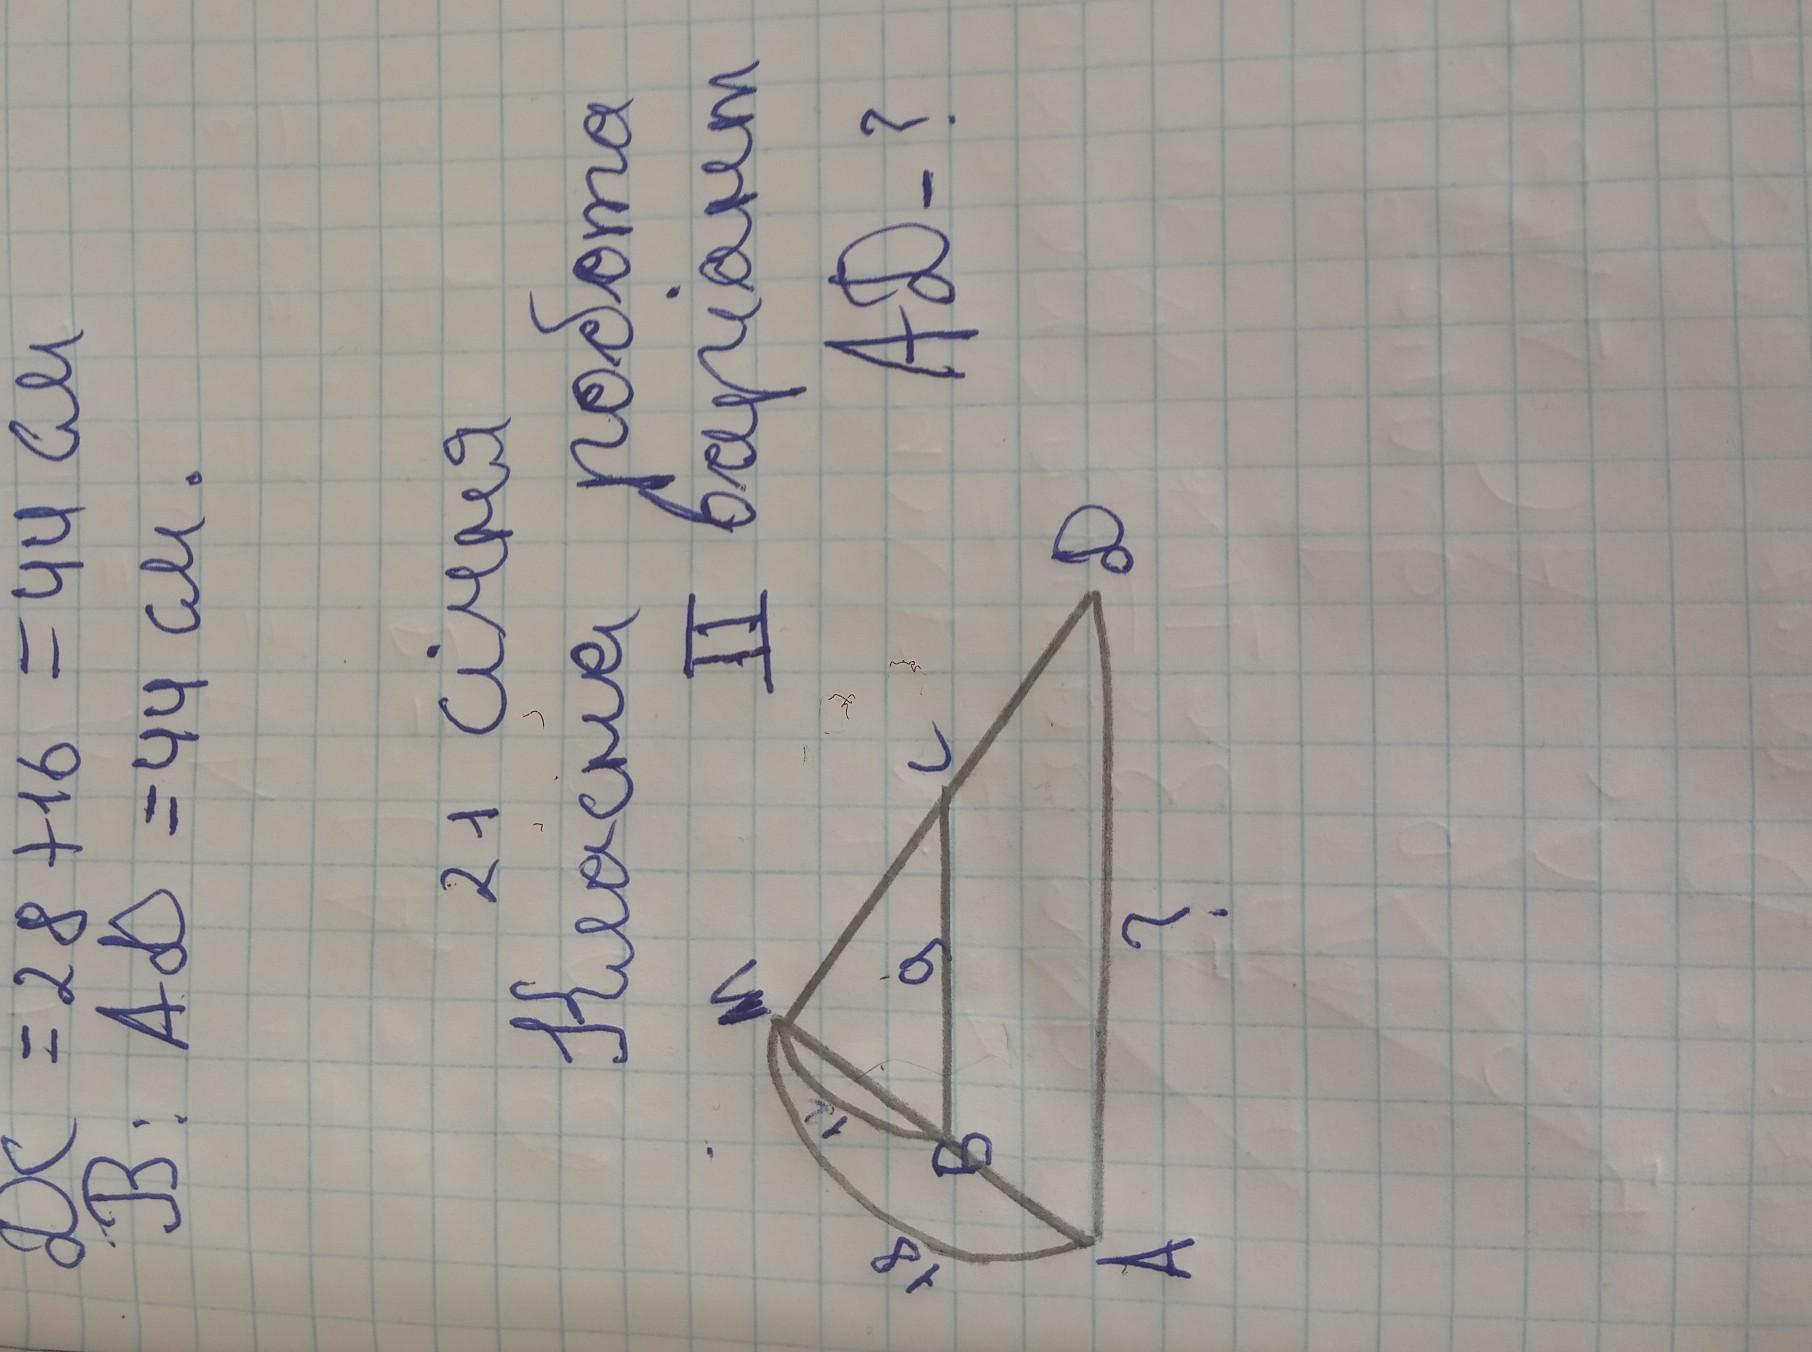 DC = 28 + 16 = 44 см
В: AD = 44 см.
21 січня
Класна робота
II варіант
AD - ?
M
12
18
9
B
C
A
D
?